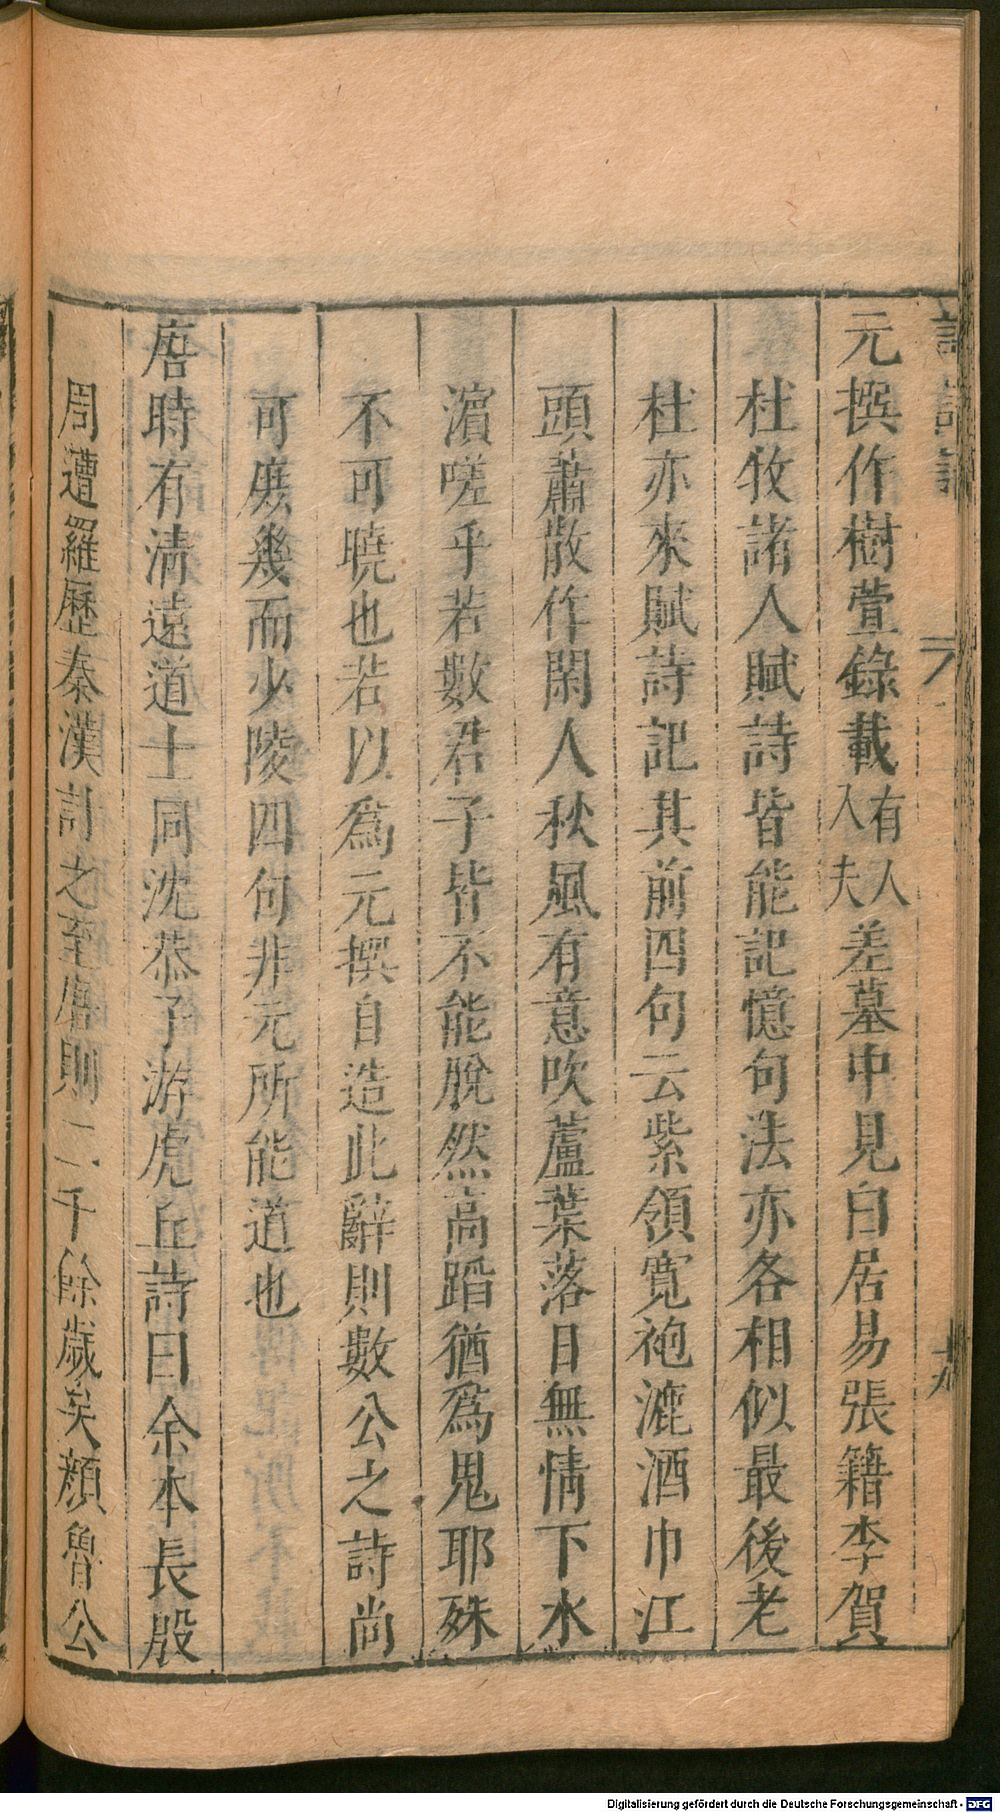 元撰作樹萱錄載有人入夫差墓中見白居易張籍李賀
杜牧諸人賦詩皆能記憶句法亦各相似最後老
杜亦來賦詩記其前四句云紫領寬袍漉酒巾江
頭蕭散作閑人秋風有意吹蘆葉落日無情下水
濵嗟乎若數君子皆不能脫然高蹈猶爲鬼耶殊
不可曉也若以爲元撰自造此辭則數公之詩尚
可庶幾而少陵四句非元所能道也
唐時有清遠道士同沈恭子游虎丘詩曰余本長殷
周遭羅歷秦漢計之至唐則二千餘歲矣顏魯公
十九
Digitalisierung gefördert durch die Deutsche Forschungsgemeinschaft - DFG